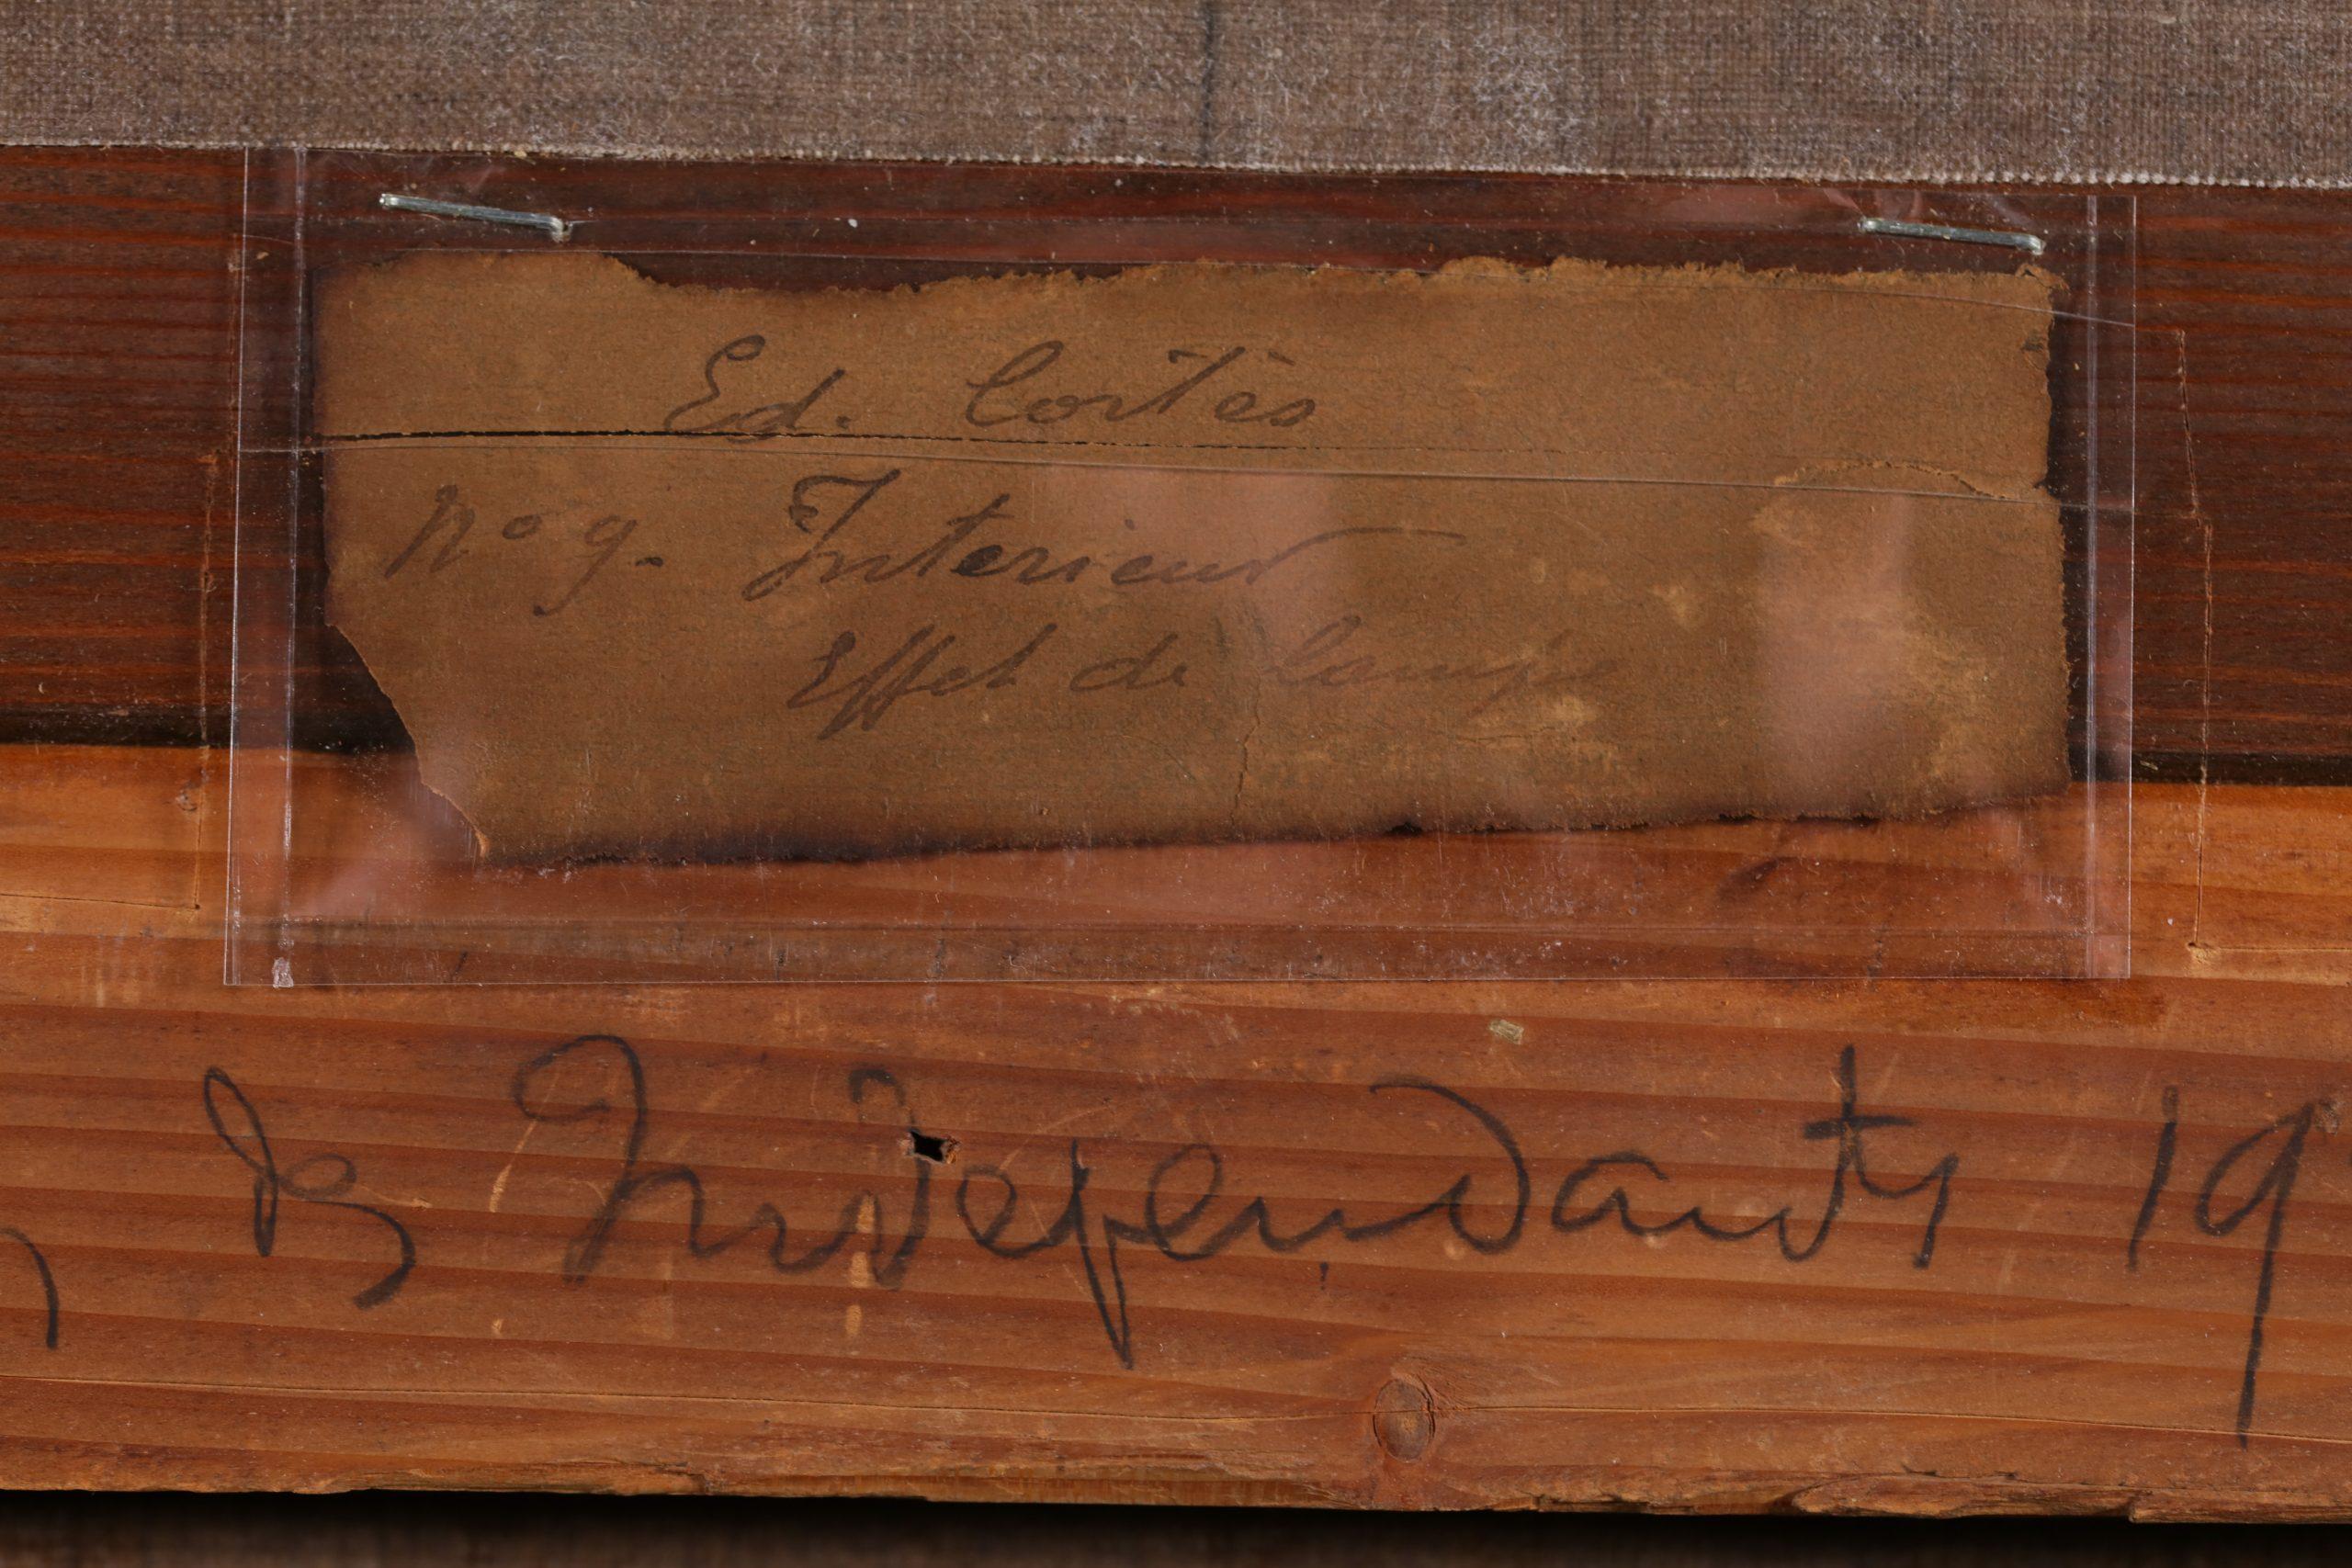 Ed. Cortès
No 9. Interieur
Effet de lampe
des Independants 19